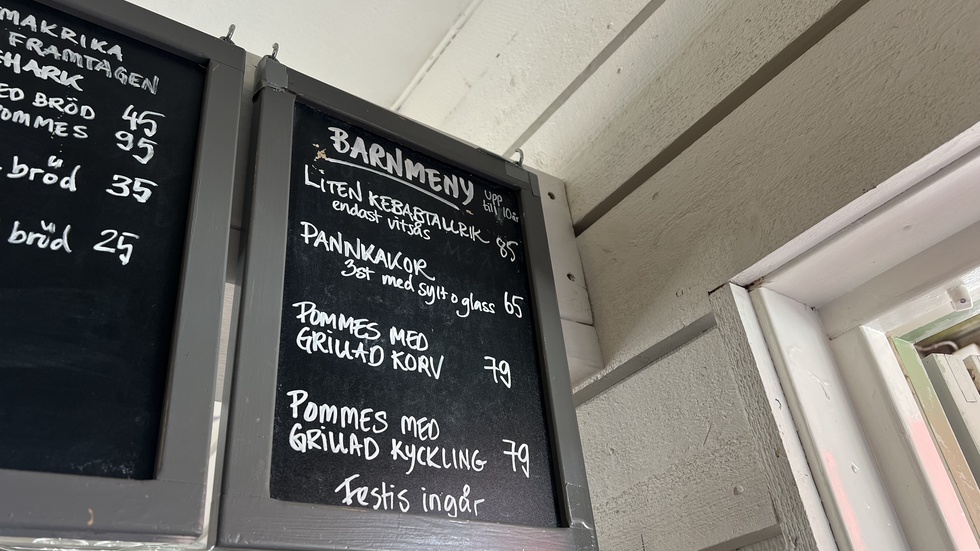 MAKRIKA
FRAMTAGEN
HARK
ED BRÖD 45
POMMES 95
bröd 35
bröd 25
BARNMENY upp till 10år
LITEN KEBABTALLRIK 85
endast vitsås
PANNKAKOR
3st med sylt o glass 65
POMMES MED
GRILLAD KORV 79
POMMES MED
GRILLAD KYCKLING 79
Festis ingår